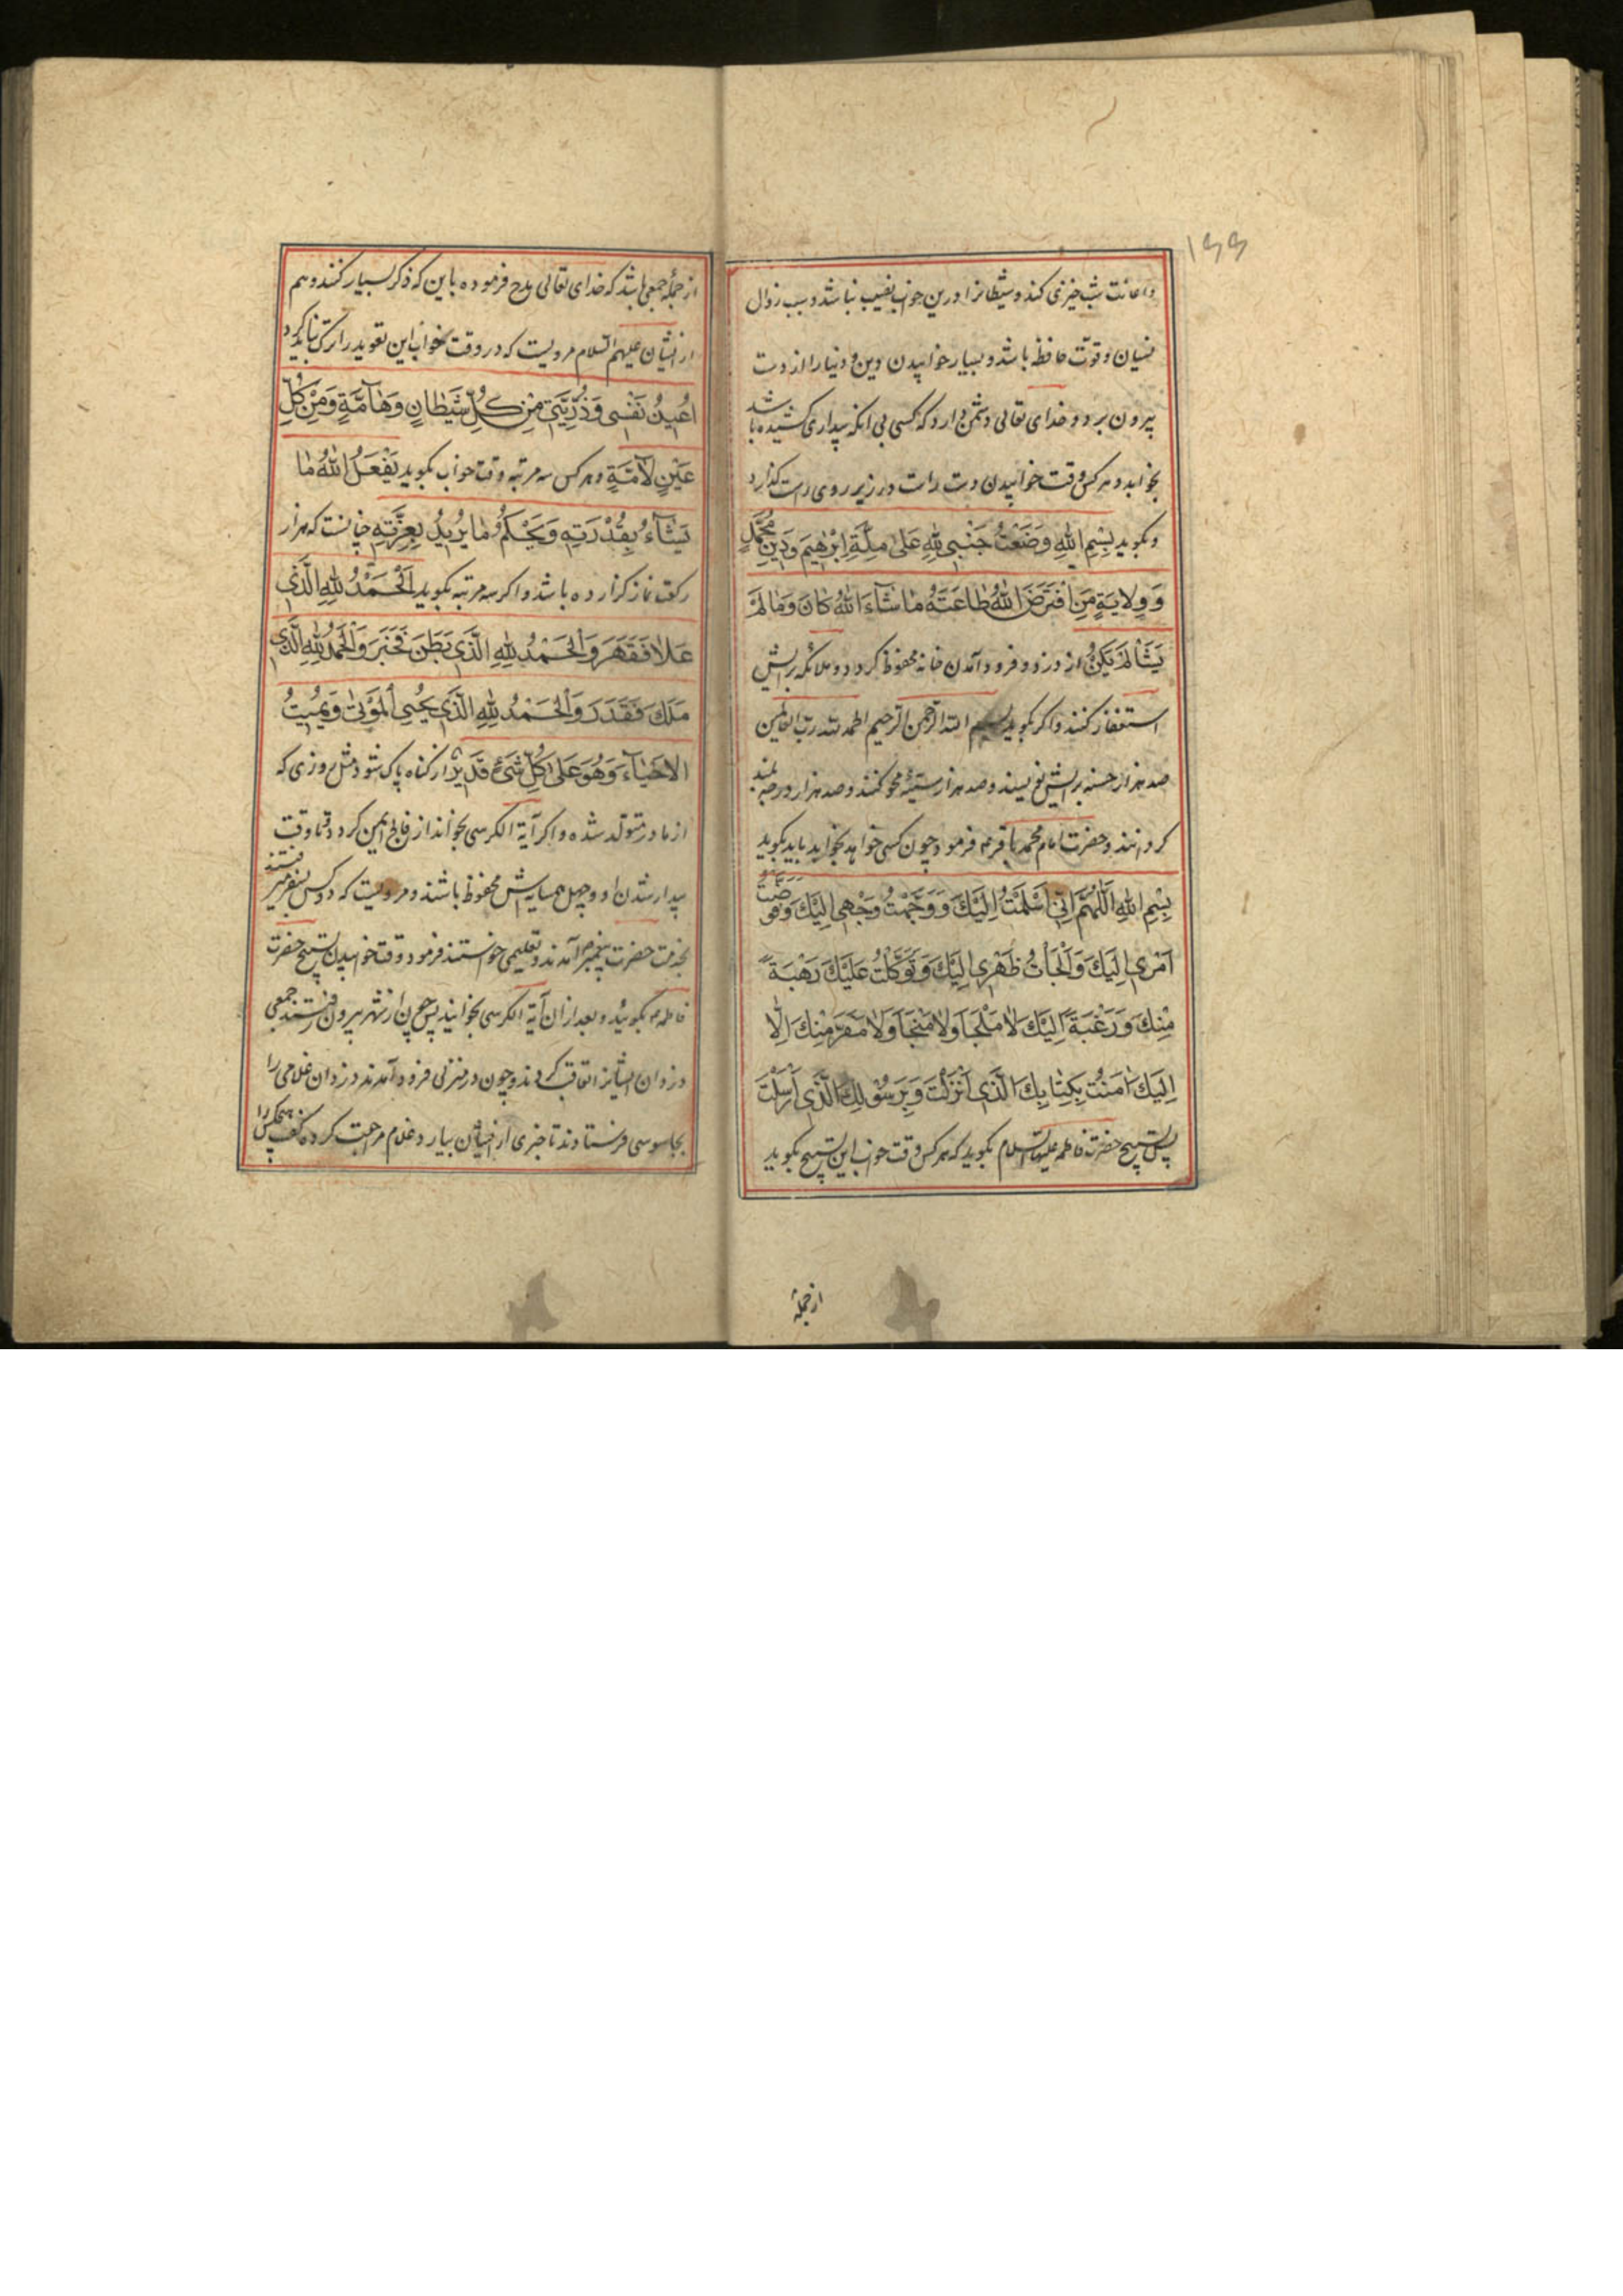 ۱۶۶
و اعانت شب خیزی کند و شیطانرا درین خواب نصیب نباشد و سبب زوال
نسیان و قوّت حافظه باشد و بسیار خوابیدن دین و دنیا را از دست
بیرون برد و خدای تعالی دشمن دارد که کسی بی آنکه بیداری کشیده باشد
بخوابد و هر کس وقت خوابیدن دست راست در زیر روی راست گذارد
و بگوید بِسْمِ اللهِ وَضَعْتُ جَنْبِی لِلّٰهِ عَلیٰ مِلَّةِ اِبْرٰهِیمَ وَدِینِ مُحَمَّدٍ
وَ وِلایَةِ مَنِ افْتَرَضَ اللهُ طاعَتَهُ ماشآءَ اللهُ کانَ وَمالَمْ
یَشَأْ لَمْ یَکُنْ از دزد و فرود آمدن خانه محفوظ گردد و ملائکه برایش
استغفار کنند و اگر بگوید بسم الله الرحمن الرحیم الحمد لله رب العالمین
صد هزار حسنه برایش نویسند و صد هزار سیّئه محو کنند و صد هزار درجه بلند
گردانند و حضرت امام محمد باقر ع فرمود چون کسی خواهد بخوابد باید بگوید
بِسْمِ اللهِ اَللّٰهُمَّ اِنِّی اَسْلَمْتُ اِلَیْکَ وَ وَجَّهْتُ وَجْهِی اِلَیْکَ وَفَوَّضْتُ
اَمْرِی اِلَیْکَ وَاَلْجَأْتُ ظَهْرِی اِلَیْکَ وَتَوَکَّلْتُ عَلَیْکَ رَهْبَةً
مِنْکَ وَرَغْبَةً اِلَیْکَ لا مَلْجَأَ وَلا مَنْجَأَ وَلا مَفَرَّ مِنْکَ اِلّا
اِلَیْکَ اٰمَنْتُ بِکِتابِکَ الَّذِی اَنْزَلْتَ وَبِرَسُولِکَ الَّذِی اَرْسَلْتَ
پس تسبیح حضرت فاطمه علیها السلام بگوید که هر کس وقت خواب این تسبیح بگوید
از جمله
از جملهٔ جمعی باشد که خدای تعالی مدح فرموده باین که ذکر بسیار کنند و هم
از ایشان علیهم السلام مرویست که در وقت خواب این تعوید را ترک نباید کرد
اُعِیذُ نَفْسِی وَذُرِّیَّتِی مِنْ کُلِّ شَیْطانٍ وَهآمَّةٍ وَمِنْ کُلِّ
عَیْنٍ لآمَّةٍ و هر کس سه مرتبه وقت خواب بگوید یَفْعَلُ اللهُ ما
یَشآءُ بِقُدْرَتِهِ وَیَحْکُمُ ما یُرِیدُ بِعِزَّتِهِ چنانست که هزار
رکعت نماز گزارده باشد و اگر سه مرتبه بگوید اَلْحَمْدُ لِلّٰهِ الَّذِی
عَلا فَقَهَرَ وَالْحَمْدُ لِلّٰهِ الَّذِی بَطَنَ فَخَبَرَ وَالْحَمْدُ لِلّٰهِ الَّذِی
مَلَکَ فَقَدَرَ وَالْحَمْدُ لِلّٰهِ الَّذِی یُحْیِی الْمَوْتیٰ وَیُمِیتُ
الاَحْیآءَ وَهُوَ عَلیٰ کُلِّ شَیْءٍ قَدِیرٌ از گناه پاک شود مثل روزی که
از مادر متولد شده و اگر آیة الکرسی بخواند از فالج ایمن گردد و تا وقت
بیدار شدن او و چهل همسایه‌اش محفوظ باشند و مرویست که دو کس بسفر میرفتند
بخدمت حضرت پیغمبر ص آمدند و تعلیمی خواستند فرمود وقت خوابیدن تسبیح حضرت
فاطمه ع بگوئید و بعد از آن آیة الکرسی بخوانید پس چون از شهر بیرون رفتند جمعی
دزدان ایشانرا تعاقب کردند و چون در منزلی فرود آمدند دزدان غلامی را
بجاسوسی فرستادند تا خبری از ایشان بیارد غلام مراجعت کرده گفت هیچکس را